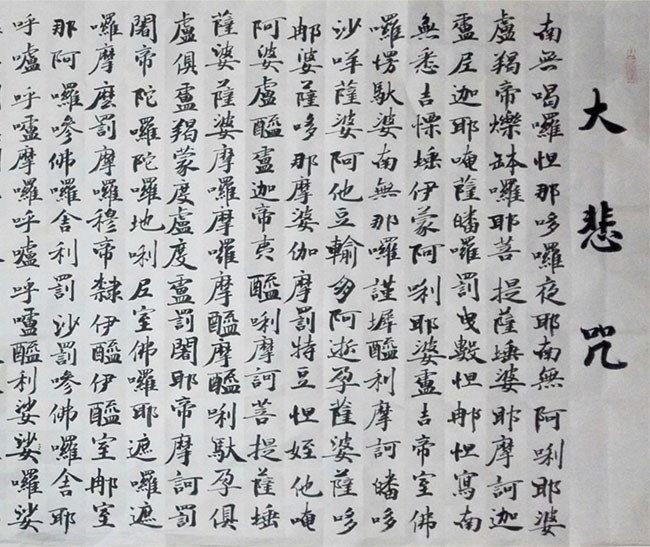 大悲咒
南無喝囉怛那哆囉夜耶南無阿唎耶婆
盧羯帝爍缽囉耶菩提薩埵婆耶摩訶迦
盧尼迦耶唵薩皤囉罰曳數怛那怛寫南
無悉吉慄埵伊蒙阿唎耶婆盧吉帝室佛
囉愣馱婆南無那囉謹墀醯利摩訶皤哆
沙咩薩婆阿他豆輸朋阿逝孕薩婆薩哆
那婆薩哆那摩婆伽摩罰特豆怛姪他唵
阿婆盧醯盧迦帝夷醯唎摩訶菩提薩埵
薩婆薩婆摩囉摩囉摩醯摩醯唎馱孕俱
盧俱盧羯蒙度盧度盧罰闍耶帝摩訶罰
闍帝陀囉陀囉地唎尼室佛囉耶遮囉遮
囉摩麼罰摩囉穆帝隸伊醯伊醯室那室
那阿囉嘇佛囉舍利罰沙罰嘇佛囉舍耶
呼嚧呼嚧摩囉呼嚧呼嚧醯利娑娑囉娑